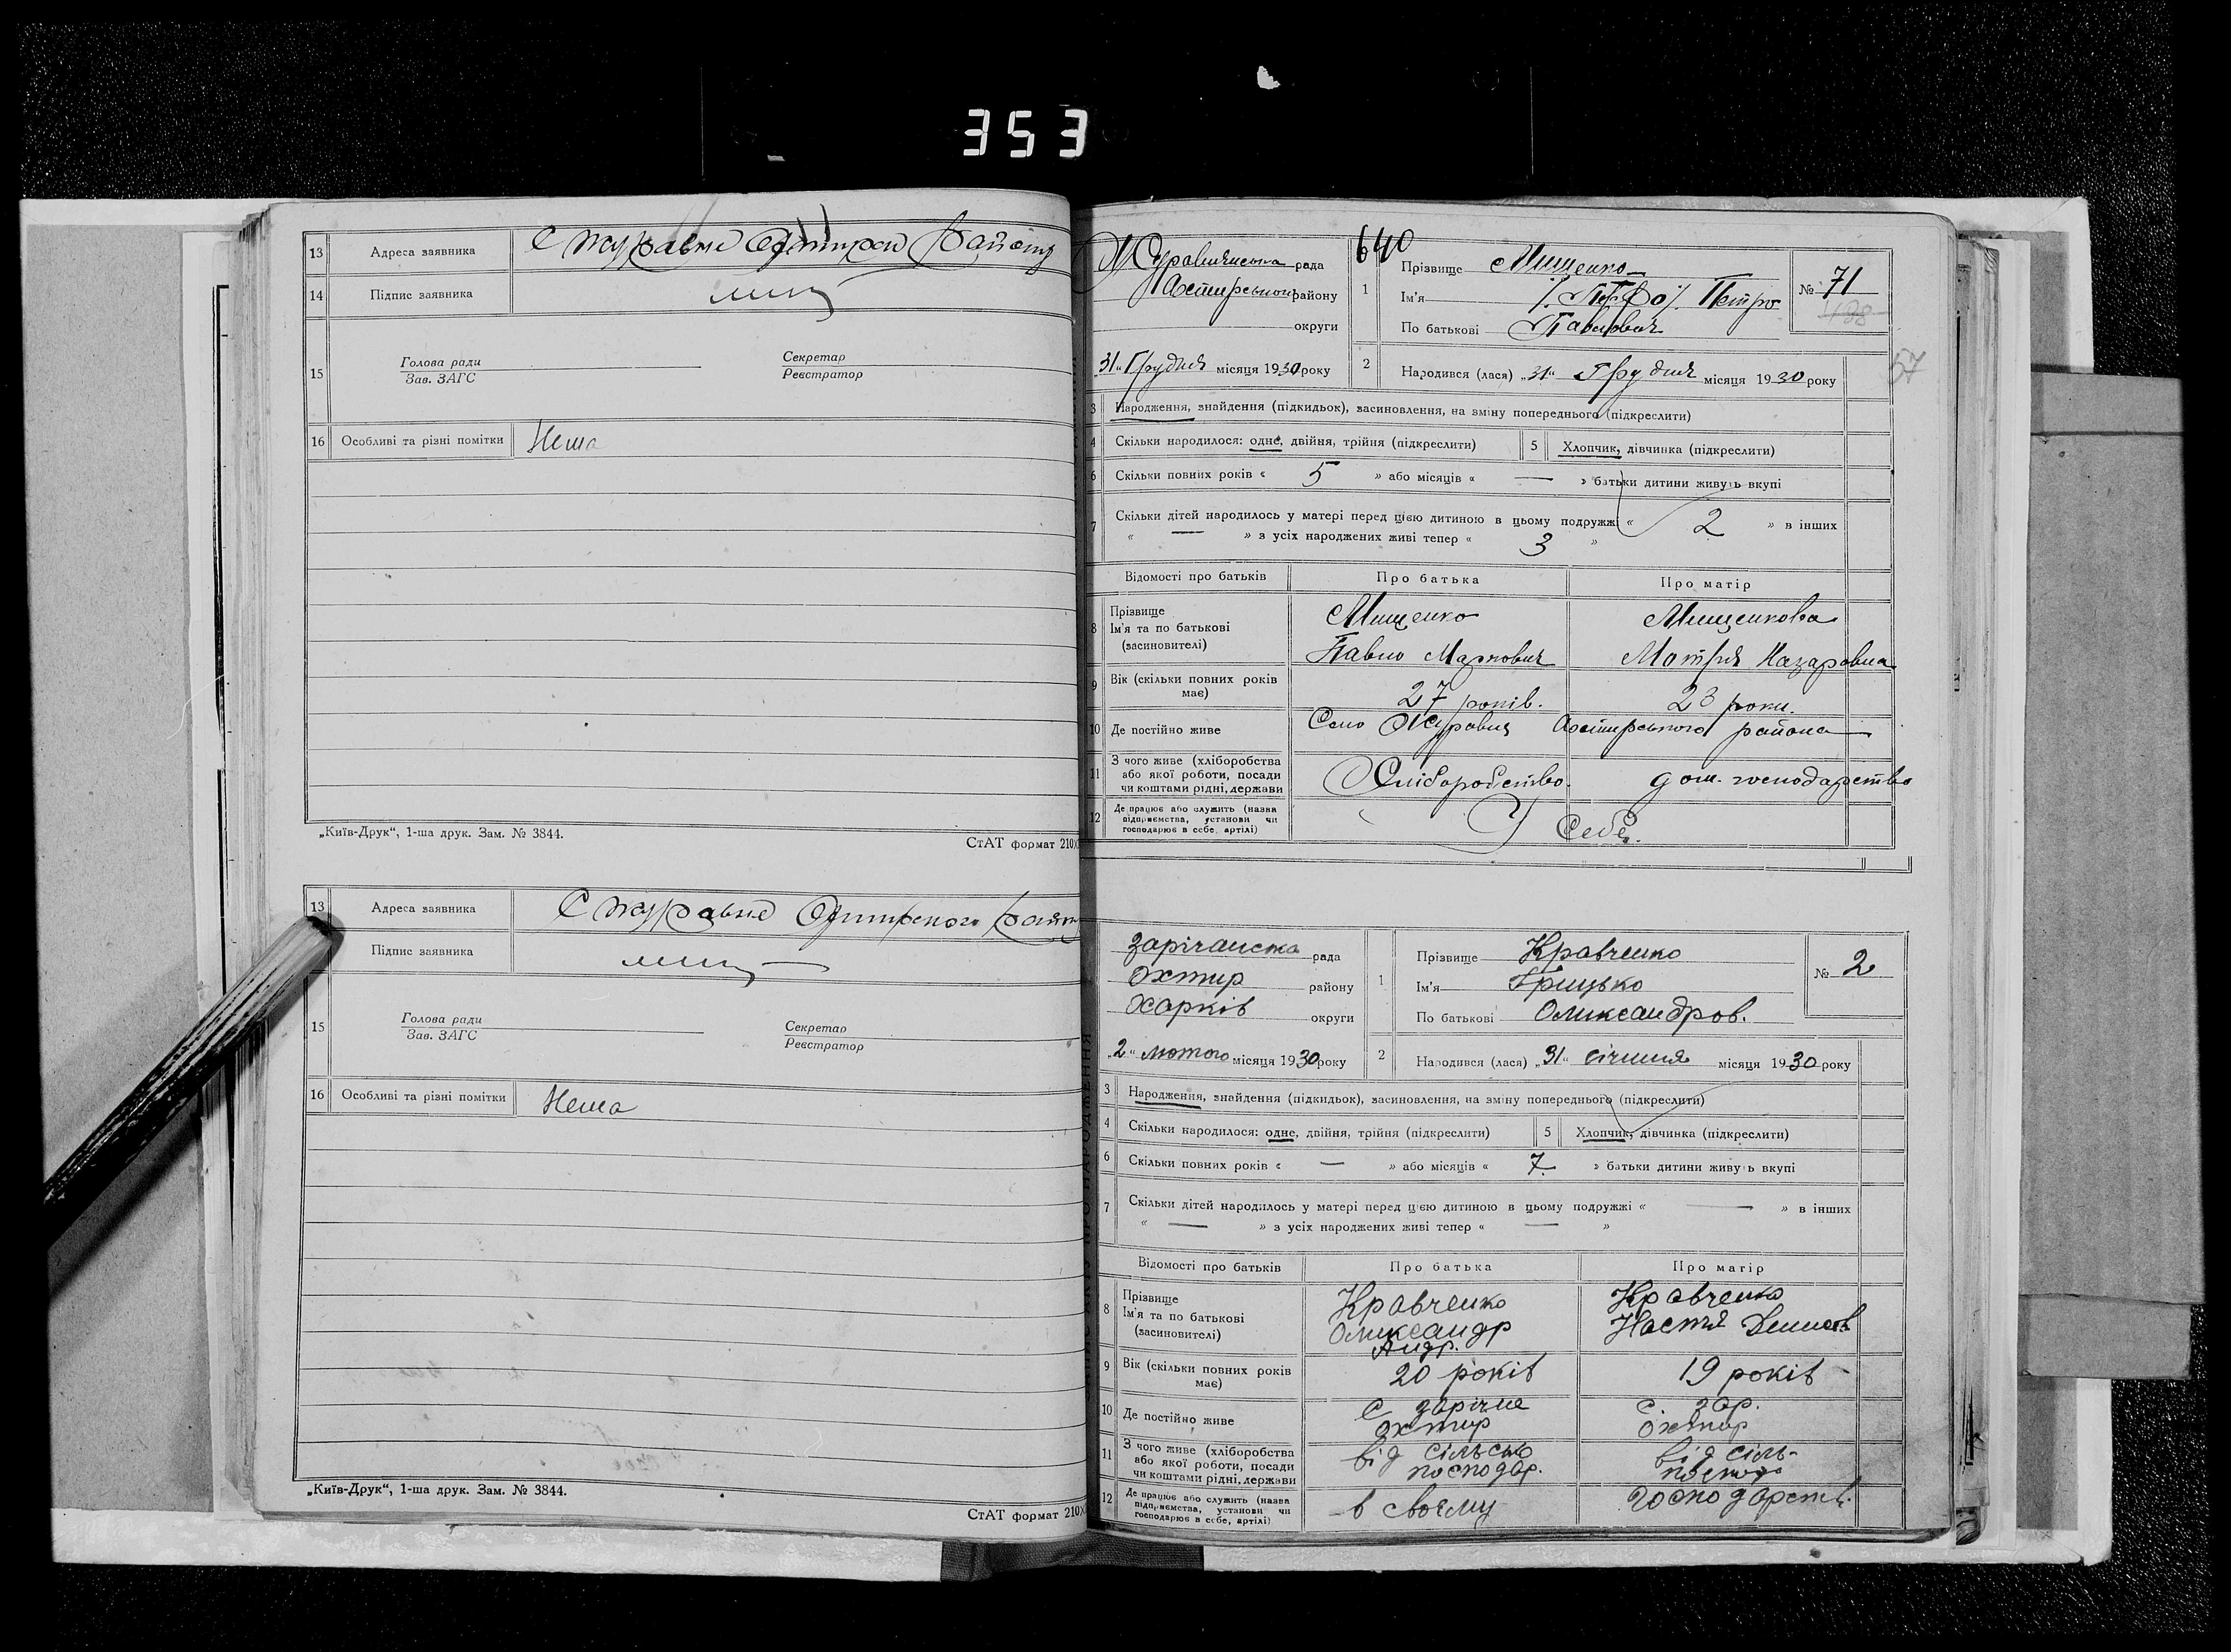 353
13 Адреса заявника С Журавне Району
14 Підпис заявника
15 Голова ради Секретар
Зав. ЗАГС Реєстратор
16 Особливі та різні помітки Нема
„Київ-Друк“, 1-ша друк. Зам. № 3844.
СтАТ формат 210
13 Адреса заявника С Журавне
Підпис заявника
15 Голова ради Секретар
Зав. ЗАГС Реєстратор
16 Особливі та різні помітки Нема
„Київ-Друк“, 1-ша друк. Зам. № 3844.
СтАТ формат 210
640
Журавнянська рада
району
округи
„31“ Грудня місяця 1930 року
1 Прізвище Мищенко
Ім'я Петро
По батькові Павлович
№ 71
57
2 Народився (лася) „31“ Грудня місяця 1930 року
3 Народження, знайдення (підкидьок), засиновлення, на зміну попереднього (підкреслити)
4 Скільки народилося: одне, двійня, трійня (підкреслити) 5 Хлопчик, дівчинка (підкреслити)
6 Скільки повних років « 5 » або місяців « — » батьки дитини живуть вкупі
7 Скільки дітей народилось у матері перед цією дитиною в цьому подружжі « 2 » в інших
« — » з усіх народжених живі тепер « 3 »
Відомості про батьків Про батька Про матір
8 Прізвище Мищенко Мищенкова
Ім'я та по батькові
(засиновителі) Павло Маркович Мотря Назаровна
9 Вік (скільки повних років
має) 27 років. 23 роки.
10 Де постійно живе Село Журавня Ахтирського района
11 З чого живе (хліборобства
або якої роботи, посади
чи коштами рідні, держави Хліборобство. дом. господарство
12 Де працює або служить (назва
підприємства, установи чи
господарює в себе, артілі) У Себе.
зарічанська рада
Охтир району
Харків округи
„2“ лютого місяця 1930 року
1 Прізвище Кравченко
Ім'я Грицько
По батькові Олександров.
№ 2
2 Народився (лася) „31“ січния місяця 1930 року
3 Народження, знайдення (підкидьок), засиновлення, на зміну попереднього (підкреслити)
4 Скільки народилося: одне, двійня, трійня (підкреслити) 5 Хлопчик, дівчинка (підкреслити)
6 Скільки повних років « — » або місяців « 7 » батьки дитини живуть вкупі
7 Скільки дітей народилось у матері перед цією дитиною в цьому подружжі « — » в інших
« — » з усіх народжених живі тепер « — »
Відомості про батьків Про батька Про матір
8 Прізвище Кравченко Кравченко
Ім'я та по батькові Олександр Настя
(засиновителі) Андр.
9 Вік (скільки повних років
має) 20 років 19 років
10 Де постійно живе С. зарічне с. зар.
Охтир Охтир
11 З чого живе (хліборобства
або якої роботи, посади
чи коштами рідні, держави від сільсько господар. від сіль-
12 Де працює або служить (назва
підприємства, установи чи
господарює в себе, артілі) в своєму господарств.